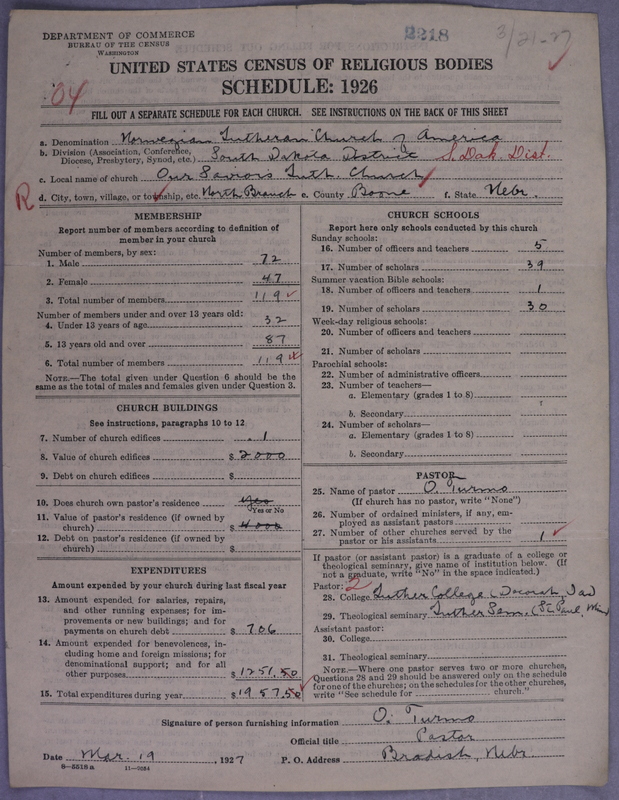 DEPARTMENT OF COMMERCE
BUREAU OF THE CENSUS
WASHINGTON
2218
3/21-27
UNITED STATES CENSUS OF RELIGIOUS BODIES
SCHEDULE: 1926
04
FILL OUT A SEPARATE SCHEDULE FOR EACH CHURCH. SEE INSTRUCTIONS ON THE BACK OF THIS SHEET
a. Denomination Norwegian Lutheran Church of America
b. Division (Association, Conference, Diocese, Presbytery, Synod, etc.) South Dakota District S. Dak. Dist.
c. Local name of church Our Saviors Luth. Church
R d. City, town, village, or township, etc. North Branch e. County Boone f. State Nebr.
MEMBERSHIP
Report number of members according to definition of
member in your church
Number of members, by sex:
1. Male 72
2. Female 47
3. Total number of members 119
Number of members under and over 13 years old:
4. Under 13 years of age 32
5. 13 years old and over 87
6. Total number of members 119
NOTE.—The total given under Question 6 should be the
same as the total of males and females given under Question 3.
CHURCH BUILDINGS
See instructions, paragraphs 10 to 12
7. Number of church edifices 1
8. Value of church edifices $ 2000
9. Debt on church edifices $
10. Does church own pastor's residence Yes
Yes or No
11. Value of pastor's residence (if owned by
church) $ 4000
12. Debt on pastor's residence (if owned by
church) $
EXPENDITURES
Amount expended by your church during last fiscal year
13. Amount expended for salaries, repairs,
and other running expenses; for im-
provements or new buildings; and for
payments on church debt $ 706
14. Amount expended for benevolences, in-
cluding home and foreign missions; for
denominational support; and for all
other purposes $ 1251.50
15. Total expenditures during year $ 1957.50
CHURCH SCHOOLS
Report here only schools conducted by this church
Sunday schools:
16. Number of officers and teachers 5
17. Number of scholars 39
Summer vacation Bible schools:
18. Number of officers and teachers 1
19. Number of scholars 30
Week-day religious schools:
20. Number of officers and teachers
21. Number of scholars
Parochial schools:
22. Number of administrative officers
23. Number of teachers—
a. Elementary (grades 1 to 8)
b. Secondary
24. Number of scholars—
a. Elementary (grades 1 to 8)
b. Secondary
PASTOR
25. Name of pastor O. Turmo
(If church has no pastor, write "None")
26. Number of ordained ministers, if any, em-
ployed as assistant pastors
27. Number of other churches served by the
pastor or his assistants 1
If pastor (or assistant pastor) is a graduate of a college or
theological seminary, give name of institution below. (If
not a graduate, write "No" in the space indicated.)
Pastor: 2
28. College Luther College (Decorah, Iow
29. Theological seminary Luther Sem. (St. Paul, Minn
Assistant pastor:
30. College
31. Theological seminary
NOTE.—Where one pastor serves two or more churches,
Questions 28 and 29 should be answered only on the schedule
for one of the churches; on the schedules for the other churches,
write "See schedule for church."
Signature of person furnishing information O. Turmo
Official title Pastor
Date Mar. 19, 1927 P. O. Address Bradish, Nebr.
8—5518a 11—9054